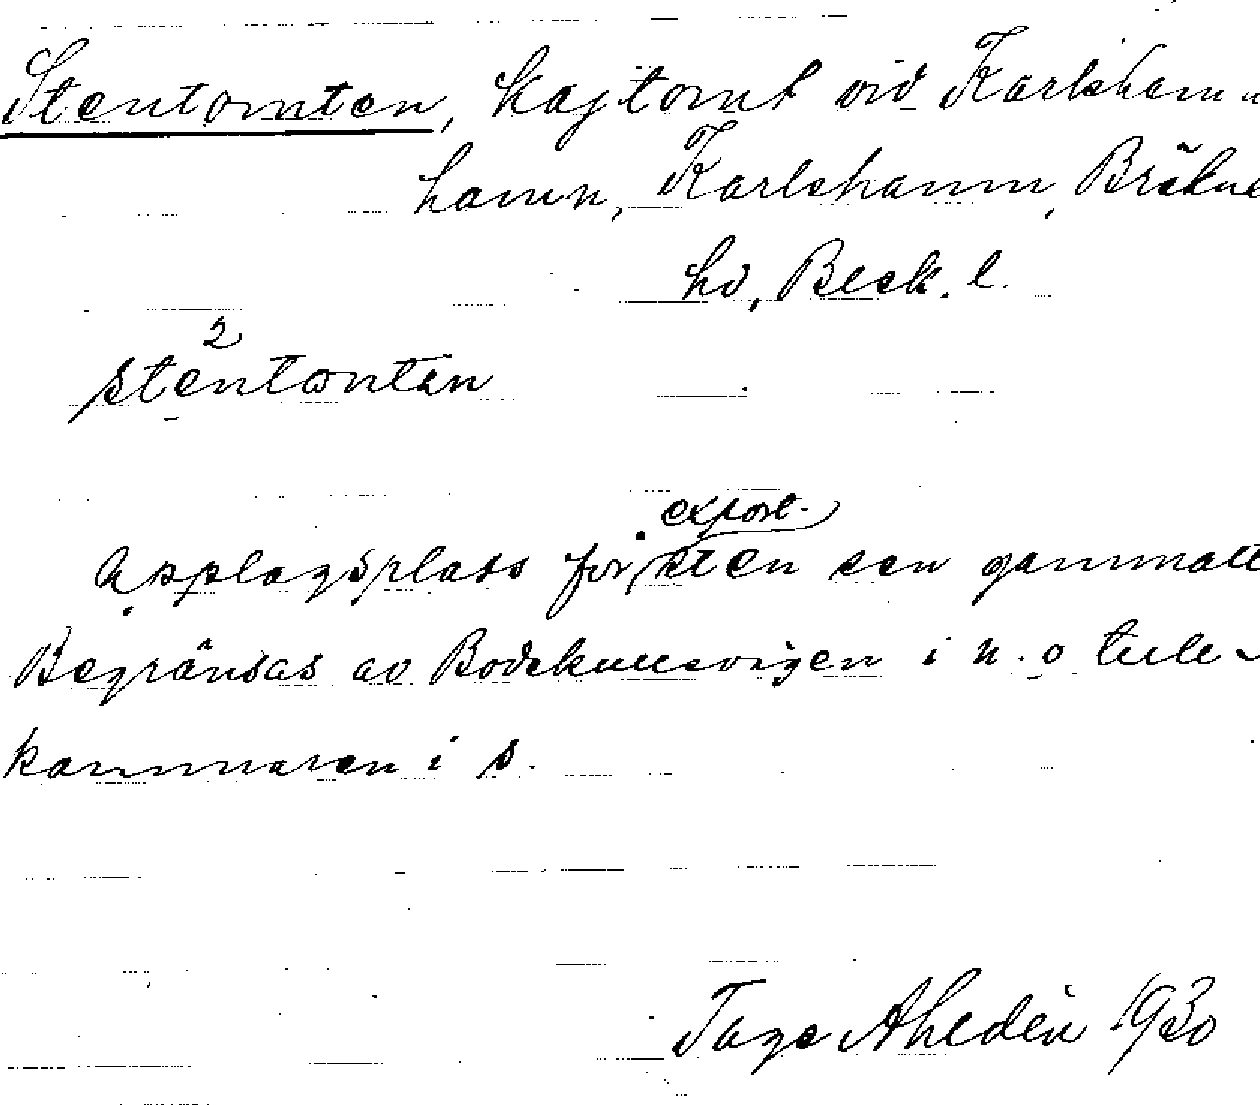 Stentomten, kajtomt vid Karlshamn
hamn, Karlshamn, Bräkne
hd, Blek. l.
2
stentomtän
export-
Upplagsplats för sten sen gammalt
Begränsas av Bodekullsvigen i n. o tull-
kammaren i s.
Tage Ahledén 1930